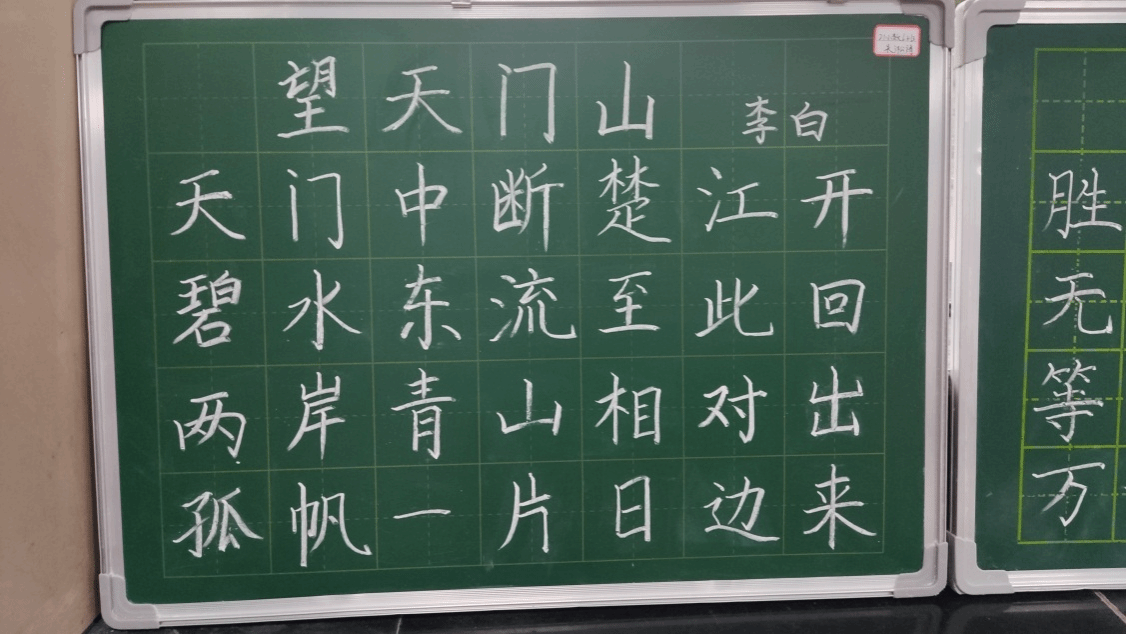 望天门山 李白
天门中断楚江开
碧水东流至此回
两岸青山相对出
孤帆一片日边来
胜
无
等
万